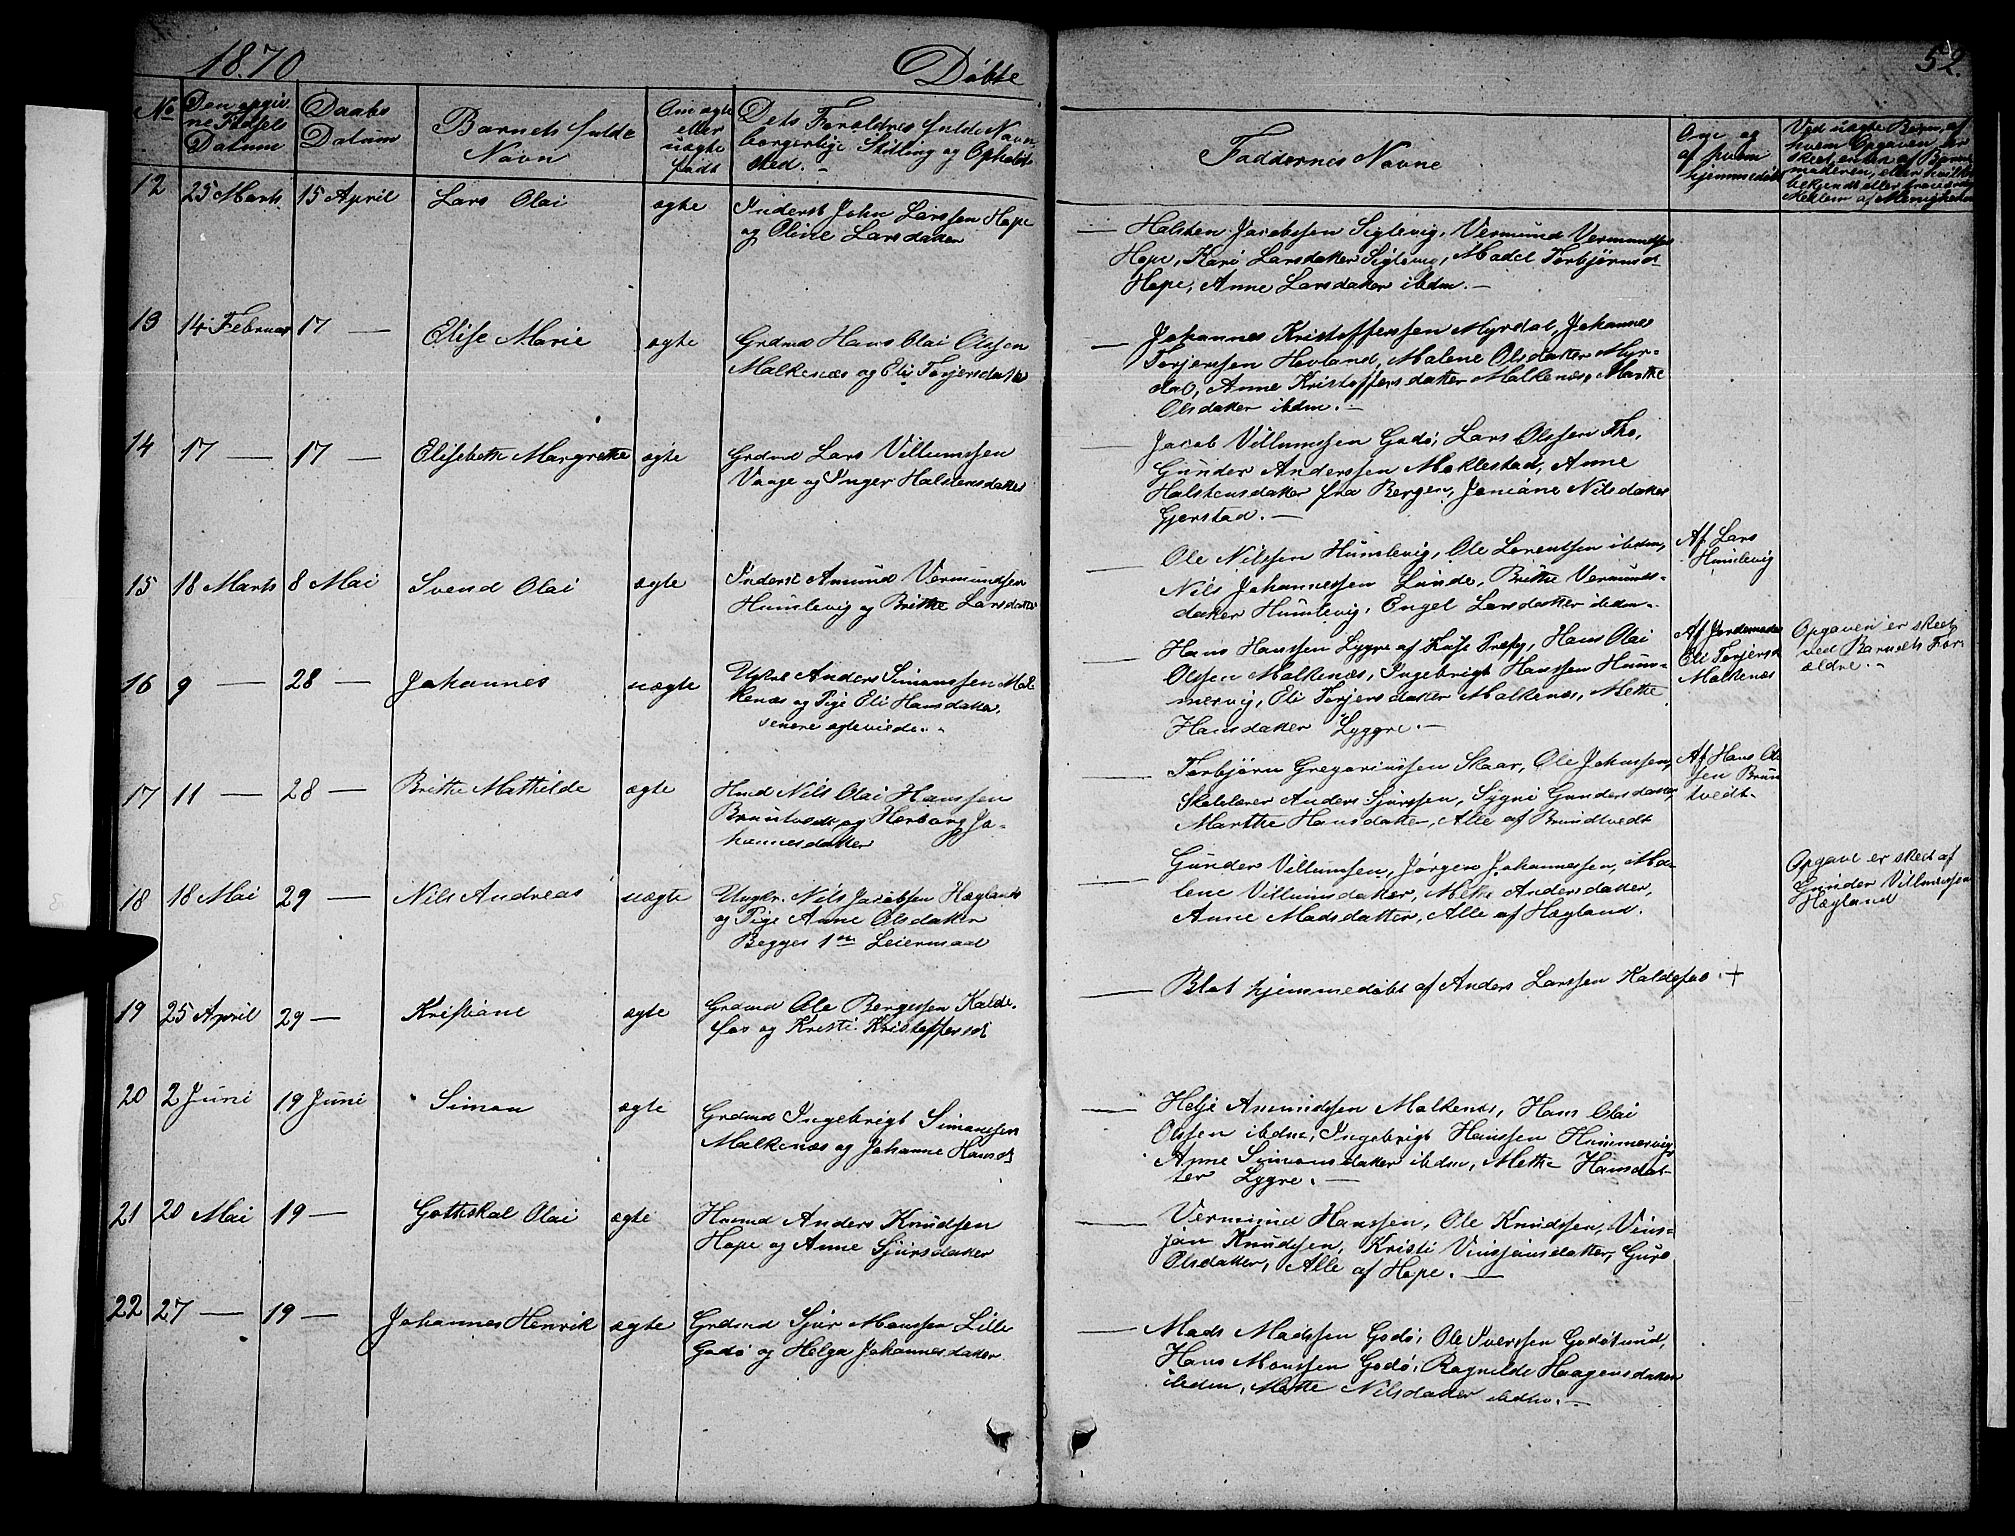 1870
Døbte
52.
No
Den opgiv
ne Fødsels
Datum
Daabs
Datum
Barnets fulde
Navn
Om ægte
eller
uægte
født
Dets Forældres fulde Navn
borgerlige Stilling og Opholds
sted. -
Faddernes Navne
Om og
af hvem
hjemmedøbt
Ved uægte Børn, af
hvem Opgaven er
skeet enten af Barne
moderen, eller
bekjendt eller
Medlem af Menigheden
12
25 Marts
15 April
Lars Olai
ægte
Inderst John Larssen Hope
og Oline Larsdatter
Halsten Jacobssen Siglevig, Vermund Vermundss
Hope, Kari Larsdatter Siglevig, Madel Torbjørnsd
Hope, Anne Larsdatter ibdm. -
13
14 Februar
17 —
Elise Marie
ægte
Grdmd Hans Olai Olssen
Malkenæs og Eli Torjersdatter
Johannes Kristofferssen Myrdal, Johannes
Torjerssen Hovland, Malene Olsdatter Myr-
dal, Anne Kristoffersdatter Malkenæs, Marthe
Olsdatter ibdm. -
14
17 —
17 —
Elisebeth Margrethe
ægte
Grdmd Lars Villumssen
Vaage og Inger Halstensdatter
Jacob Villumssen Godø, Lars Olssen Tho,
Gunder Anderssen Meklestad, Anne
Halstensdatter fra Bergen, Joniane Nilsdatter
Gjerstad. -
15
18 Marts
8 Mai
Svend Olai
ægte
Inderst Amund Vermundssen
Humlevig og Brithe Larsdatter
Ole Nilssen Humlevig, Ole Lorentsen ibdm,
Nils Johannessen Lunde, Brithe Vermunds-
datter Humlevig, Engel Larsdatter ibdm -
Af Lars
Humlevig
16
9 —
28 —
Johannes
uægte
Ugkrl Anders Simonssen Mal
kenæs og Pige Eli Hansdatter,
senere egteviede. -
Hans Hanssen Lyggre af Præg, Hans Olai
Olssen Malkenæs, Ingebrigt Hanssen Hum-
mervig, Eli Torjersdatter Malkenæs, Mette
Hansdatter Lyggre. -
Af Jordemoder
Eli Torjersd
Malkenæs
Opgaven er skeet
ved Barnets For
ældre. -
17
11 —
28 —
Brithe Mathilde
ægte
Hmd Nils Olai Hanssen
Bruntvedt og Herborg Jo-
hannesdatter
Torbjørn Gregoriussen Skaar, Ole Johnssen,
Skolelærer Anders Sjurssen, Sygni Gundersdatter,
Marthe Hansdatter, Alle af Brundtvedt
Af Hans Ol
sen Brun
tvedt.
18
18 Mai
29 —
Nils Andreas
uægte
Ungkr. Nils Jacobssen Hægland
og Pige Anne Olsdatter
Begges 1ste Leiermaal
Gunder Villumsen, Jørgen Johannessen, Ma-
lene Villumsdatter, Mette Andersdatter,
Anne Madsdatter, Alle af Hægland.
Opgave er skeet af
Gunder Villumssen
Hægland
19
25 April
29 —
Kristiane
ægte
Grdmd Ole Bergessen Kalde-
fos og Kristi Kristoffersd
Blot hjemmedøbt af Anders Larssen Kaldefos. +
20
2 Juni
19 Juni
Simon
ægte
Grdmd Ingebrigt Simonssen
Malkenæs og Johanne Hansd
Helje Amundssen Malkenæs, Hans Olai
Olssen ibdm, Ingebrigt Hanssen Hummervig
Anne Simonsdatter ibdm, Mette Hansdat-
ter Lyggre. -
21
20 Mai
19 —
Gothskal Olai
ægte
Husmd Anders Knudssen
Hope og Anne Sjursdatter
Vermund Hanssen, Ole Knudssen, Vins-
jan Knudssen, Kristi Vinsjansdatter, Guro
Olsdatter, Alle af Hope. —
22
27 —
19 —
Johannes Henrik
ægte
Grdmd Sjur Monssen Lille
Godø og Helga Johannesdatter
Mads Madssen Godø, Ole Iverssen Godøsund,
Hans Monssen Godø, Ragnilde Haagensdatter
ibdm, Mette Nilsdatter ibdm. -